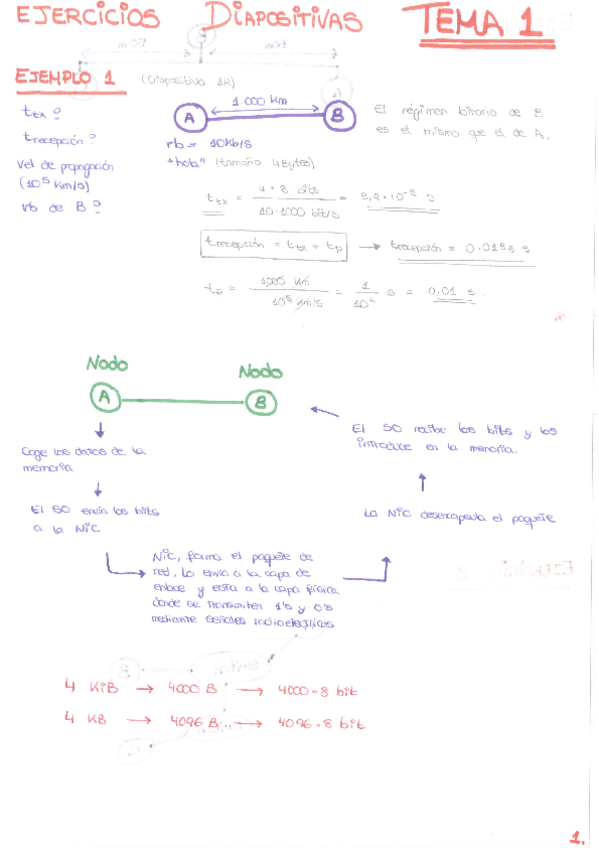 EJERCICIOS DIAPOSITIVAS TEMA 1
EJEMPLO 1 (Diapositiva 12)
t tx ?
t recepción ?
Vel de propagación
(10⁵ Km/s)
vb de B ?
1 000 Km
A B
rb = 10Kb/s
"hola" (tamaño 4Bytes)
El régimen binario de B
es el mismo que el de A.
t tx = 4 · 8 bits / 10·1000 bit/s = 3,2·10⁻³ s
t recepción = t tx + t p → t recepción = 0.0132 s
t p = 1000 Km / 10⁵ Km/s = 1 / 10² s = 0.01 s
Nodo Nodo
A B
Coge los datos de la
memoria
El SO envía los bits
a la NIC
NIC, forma el paquete de
red, lo envía a la capa de
enlace y esta a la capa física
donde se transmiten 1's y 0's
mediante señales radioeléctricas
La NIC desencapsula el paquete
El SO recibe los bits y los
introduce en la memoria.
4 KiB → 4000 B → 4000·8 bit
4 KB → 4096 B → 4096·8 bit
1.